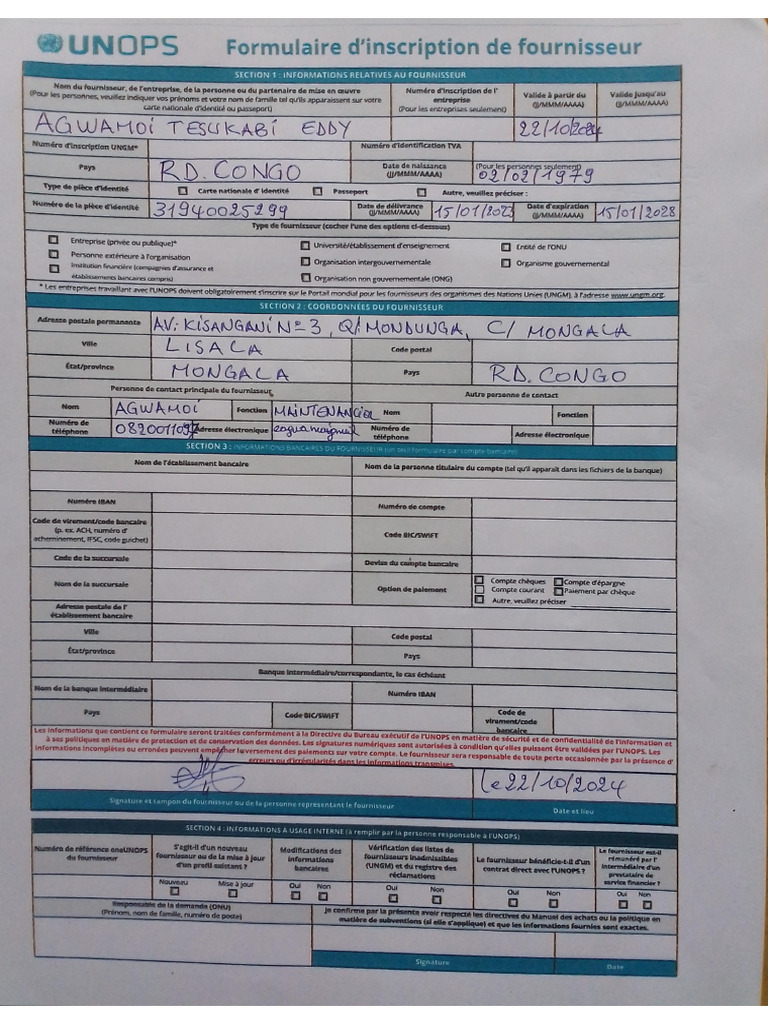 UNOPS Formulaire d'inscription de fournisseur
SECTION 1 : INFORMATIONS RELATIVES AU FOURNISSEUR
Nom du fournisseur, de l'entreprise, de la personne ou du partenaire de mise en œuvre
(Pour les personnes, veuillez indiquer vos prénoms et votre nom de famille tel qu'ils apparaissent sur votre carte nationale d'identité ou passeport)
Numéro d'inscription de l'entreprise
(Pour les entreprises seulement)
Valide à partir du
(JJ/MMM/AAAA)
Valide jusqu'au
(JJ/MMM/AAAA)
AGWAMOI TESUKABI EDDY 22/10/2024
Numéro d'inscription UNGM* Numéro d'identification TVA
Pays RD. CONGO Date de naissance (JJ/MMM/AAAA) (Pour les personnes seulement) 02/02/1979
Type de pièce d'identité Carte nationale d'identité Passeport Autre, veuillez préciser :
Numéro de la pièce d'identité 31940025299 Date de délivrance (JJ/MMM/AAAA) 15/01/2023 Date d'expiration (JJ/MMM/AAAA) 15/01/2028
Type de fournisseur (cocher l'une des options ci-dessous)
Entreprise (privée ou publique)* Université/établissement d'enseignement Entité de l'ONU
Personne extérieure à l'organisation Organisation intergouvernementale Organisme gouvernemental
Institution financière (compagnies d'assurance et établissements bancaires compris) Organisation non gouvernementale (ONG)
* Les entreprises travaillant avec l'UNOPS doivent obligatoirement s'inscrire sur le Portail mondial pour les fournisseurs des organismes des Nations Unies (UNGM), à l'adresse www.ungm.org.
SECTION 2 : COORDONNÉES DU FOURNISSEUR
Adresse postale permanente AV: KISANGANI N° 3, Q/MONDUNGA, C/ MONGALA
Ville LISALA Code postal
État/province MONGALA Pays RD. CONGO
Personne de contact principale du fournisseur Autre personne de contact
Nom AGWAMOI Fonction Nom Fonction
Numéro de téléphone Adresse électronique Numéro de téléphone Adresse électronique
SECTION 3 : INFORMATIONS BANCAIRES DU FOURNISSEUR (un seul formulaire par compte bancaire)
Nom de l'établissement bancaire Nom de la personne titulaire du compte (tel qu'il apparaît dans les fichiers de la banque)
Numéro IBAN Numéro de compte
Code de virement/code bancaire
(p. ex. ACH, numéro d'acheminement, IFSC, code guichet)
Code BIC/SWIFT
Code de la succursale Devise du compte bancaire
Nom de la succursale Option de paiement
Compte chèques Compte d'épargne
Compte courant Paiement par chèque
Autre, veuillez préciser
Adresse postale de l'établissement bancaire
Ville Code postal
État/province Pays
Banque intermédiaire/correspondante, le cas échéant
Nom de la banque intermédiaire Numéro IBAN
Pays Code BIC/SWIFT Code de virement/code bancaire
Les informations que contient ce formulaire seront traitées conformément à la Directive du Bureau exécutif de l'UNOPS en matière de sécurité et de confidentialité de l'information et
à ses politiques en matière de protection et de conservation des données. Les signatures numériques sont autorisées à condition qu'elles puissent être validées par l'UNOPS. Les
informations incomplètes ou erronées peuvent empêcher le versement des paiements sur votre compte. Le fournisseur sera responsable de toute perte occasionnée par la présence d'
erreurs ou d'irrégularités dans les informations transmises.
Le 22/10/2024
Signature et tampon du fournisseur ou de la personne représentant le fournisseur Date et lieu
SECTION 4 : INFORMATIONS À USAGE INTERNE (à remplir par la personne responsable à l'UNOPS)
Numéro de référence oneUNOPS du fournisseur
S'agit-il d'un nouveau fournisseur ou de la mise à jour d'un profil existant ?
Modifications des informations bancaires
Vérification des listes de fournisseurs inadmissibles (UNGM) et du registre des réclamations
Le fournisseur bénéficie-t-il d'un contrat direct avec l'UNOPS ?
Le fournisseur est-il rémunéré par l'intermédiaire d'un prestataire de service financier ?
Nouveau Mise à jour Oui Non Oui Non Oui Non Oui Non
Responsable de la demande (ONU)
(Prénom, nom de famille, numéro de poste)
Je confirme par la présente avoir respecté les directives du Manuel des achats ou la politique en
matière de subventions (si elle s'applique) et que les informations fournies sont exactes.
Signature Date